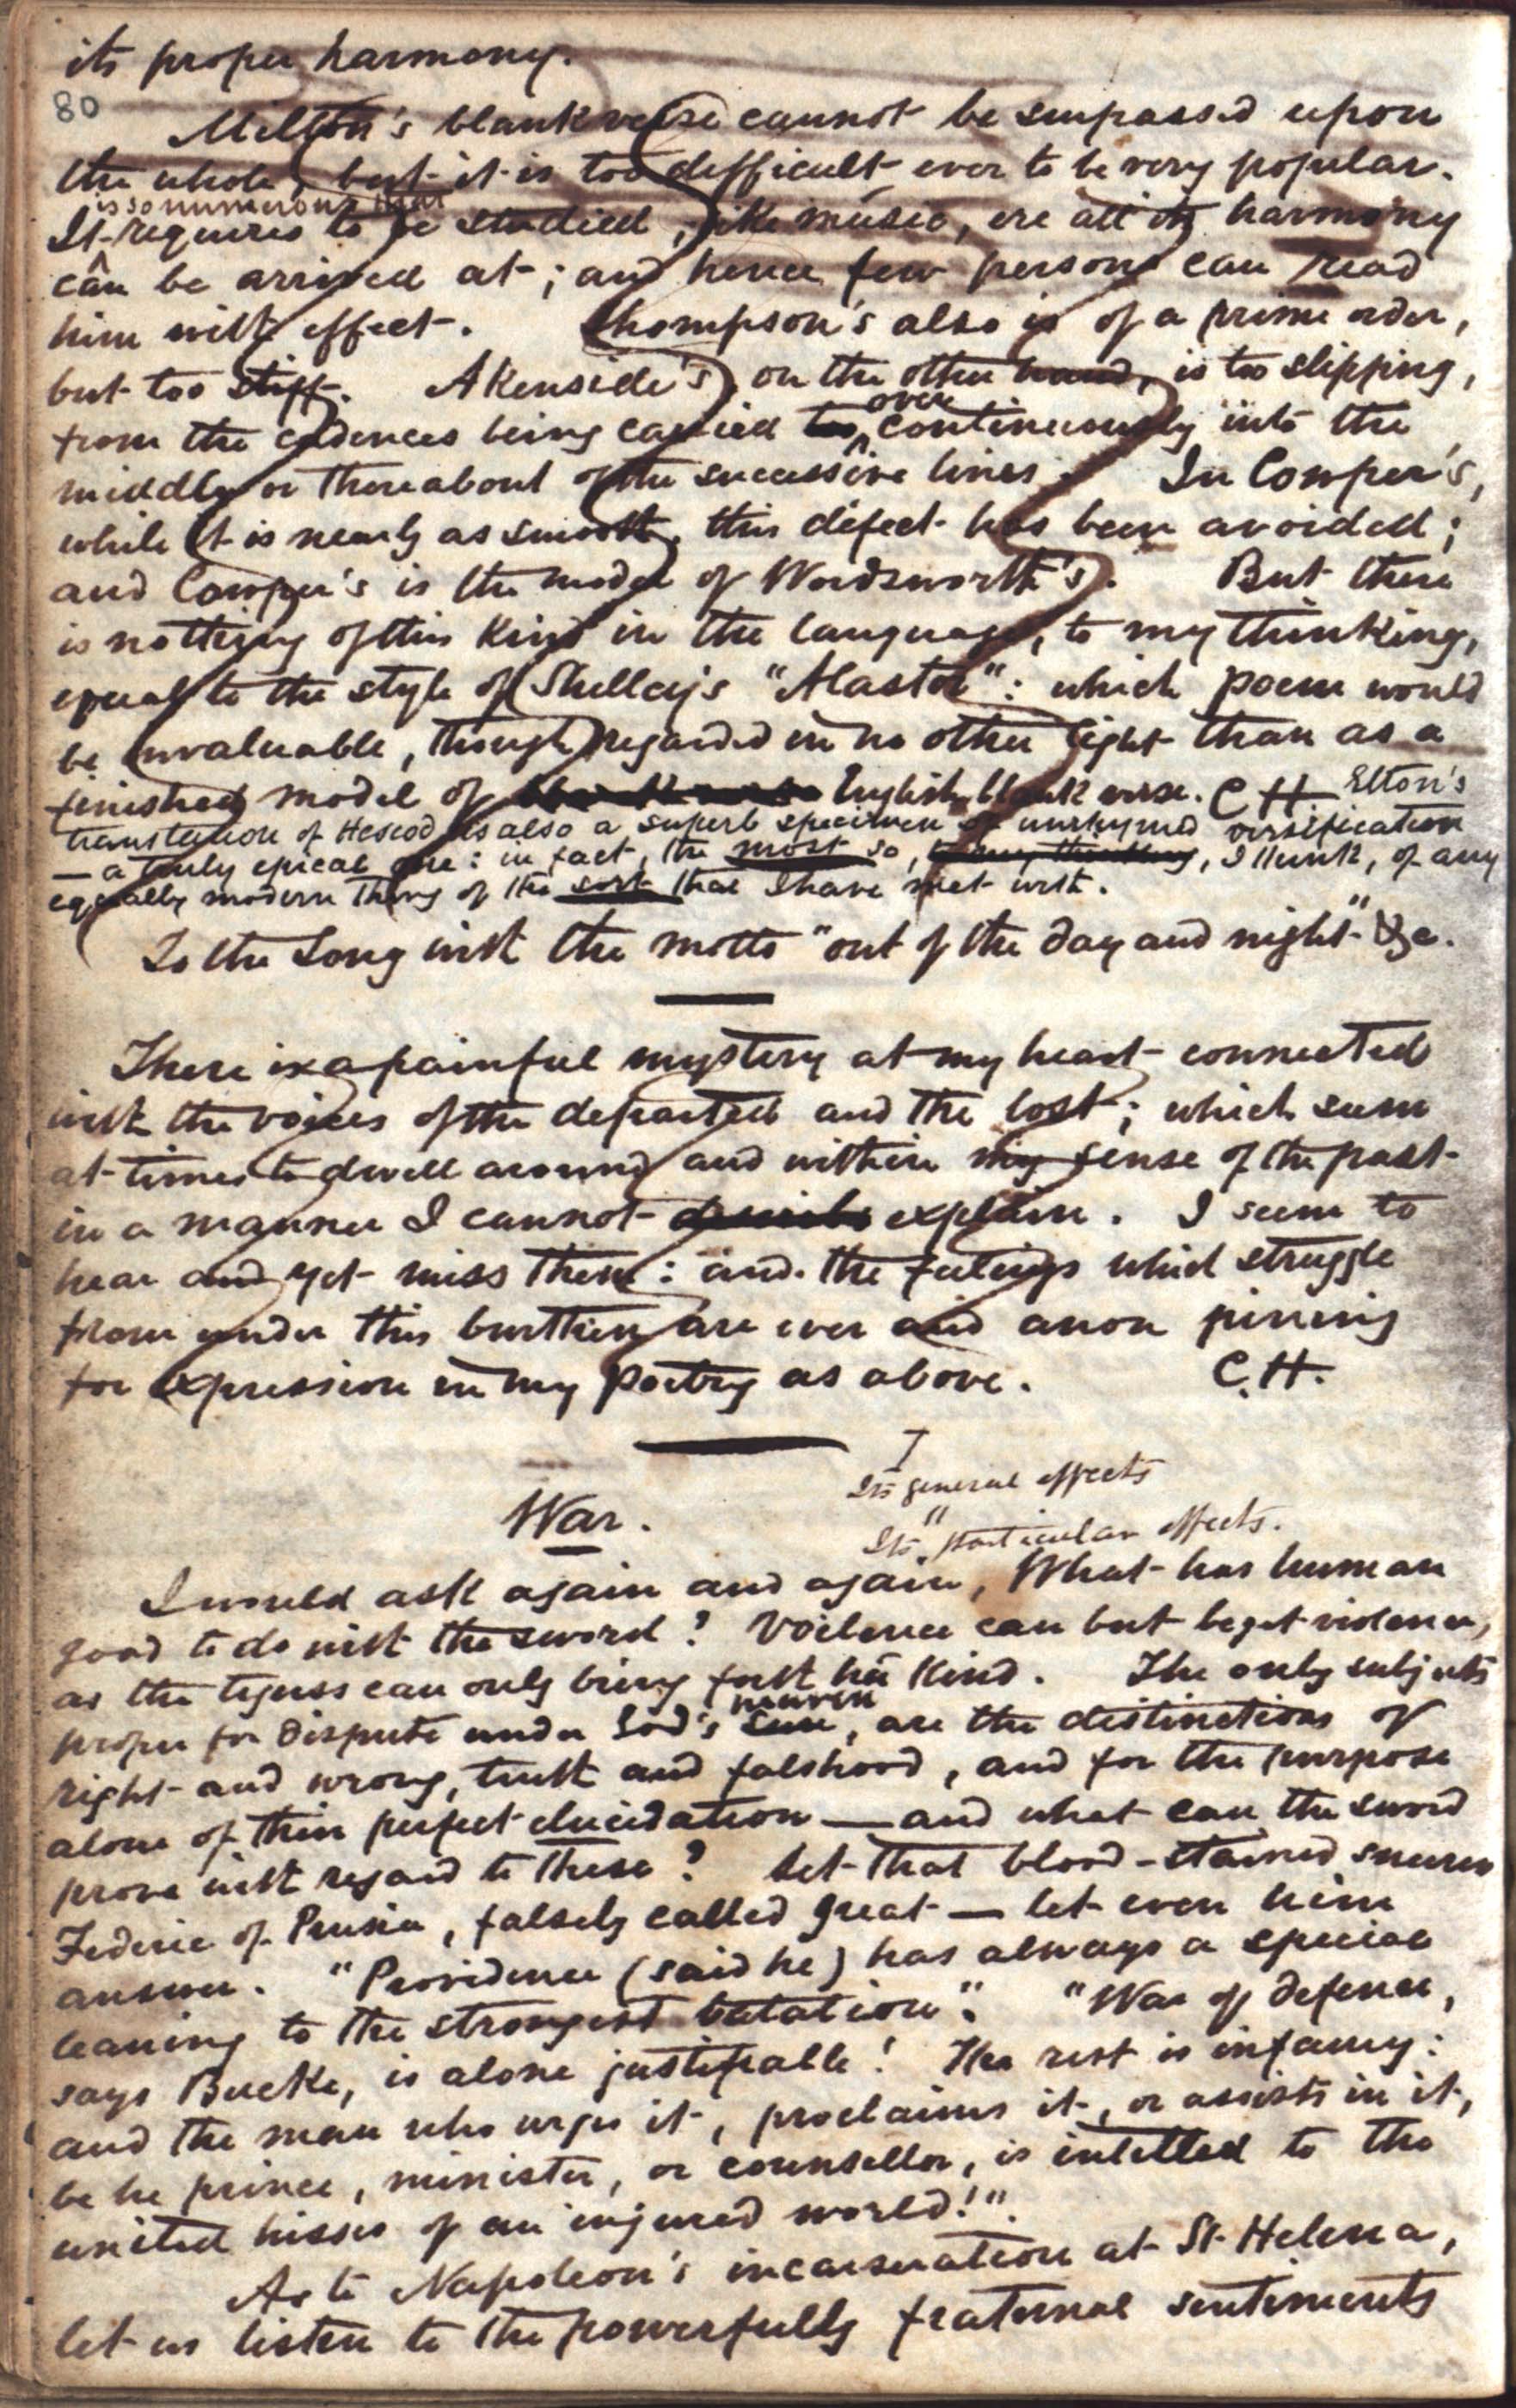 its proper harmony.
80
Milton's blank verse cannot be surpassed upon
the whole, but it is too difficult ever to be very popular.
is so numerous that
It requires to be studied, like music, ere all its harmony
can be arrived at; and hence few persons can read
him with effect. Thompson's also is of a prime order,
but too stiff. Akenside's, on the other hand, is too slipping,
over
from the cadences being carried too continuously into the
middle or thereabout of the successive lines. In Cowper's,
while it is nearly as smooth, this defect has been avoided;
and Cowper's is the model of Wordsworth's. But there
is nothing of this kind in the language, to my thinking,
equal to the style of Shelley's "Alastor": which poem would
be invaluable, though regarded in no other light than as a
finished model of blank verse English blank verse. C H Elton's
translation of Hesiod is also a superb specimen of unrhymed versification
— a truly epical one: in fact, the most so, to my thinking, I think, of any
equally modern thing of the sort that I have met with.
To the Song with the motto "out of the day and night" &c.
There is a painful mystery at my heart connected
with the voices of the departed and the lost; which seem
at times to dwell around and within my sense of the past
in a manner I cannot describe explain. I seem to
hear and yet miss them: and the feelings which struggle
from under this burthen are ever and anon pining
for expression in my poetry as above. C.H.
I
Its general effects
War.
"
Its particular effects.
I would ask again and again, What has human
good to do with the sword? Voilence can but beget violence,
as the tigress can only bring forth her kind. The only subjects
heaven
proper for dispute under God's sun, are the distinctions of
right and wrong, truth and falshood, and for the purpose
alone of their perfect elucidation — and what can the sword
prove with regard to these? Let that blood-stained
Federic of Prusia, falsely called great — let even him
answer. "Providence (said he) has always a special
leaning to the strongest batation". "War of defence,
says Bucke, is alone justifiable! The rest is infamy:
and the man who urges it, proclaims it, or assists in it,
be he prince, minister, or counsellor, is intitled to the
united hisses of an injured world!".
As to Napoleon's incarseration at St. Helena,
let us listen to the powerfully fraternal sentiments